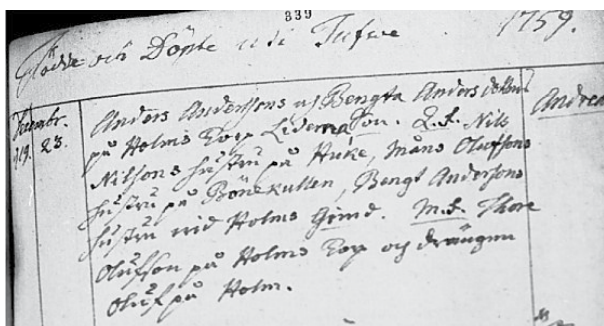 839
Födde och Döpte uti Tufwe 1759.
Decembr. Anders Andersons och Bengta Anders dotters
19. 23. på Holms Torp Son. Q.S. Nils Andrea
Nilsons hustru på Huke, Måns Olufsons
hustru på Bönekullen, Bengt Andersons
hustru wid Holms Grind. M.S. Thore
Olufson på Holms Torp och drängen
Oluf på Holm.